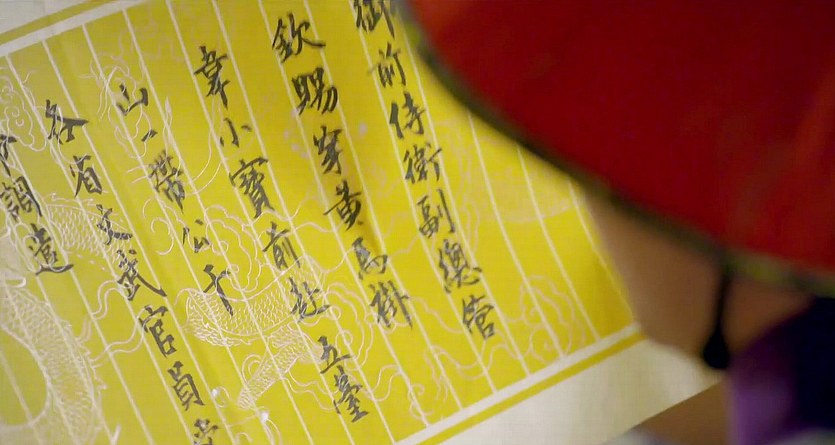 御前侍衛副總管
欽賜穿黃馬褂
韋小寶前赴五臺
山一帶公干
各省文武官員
調遣